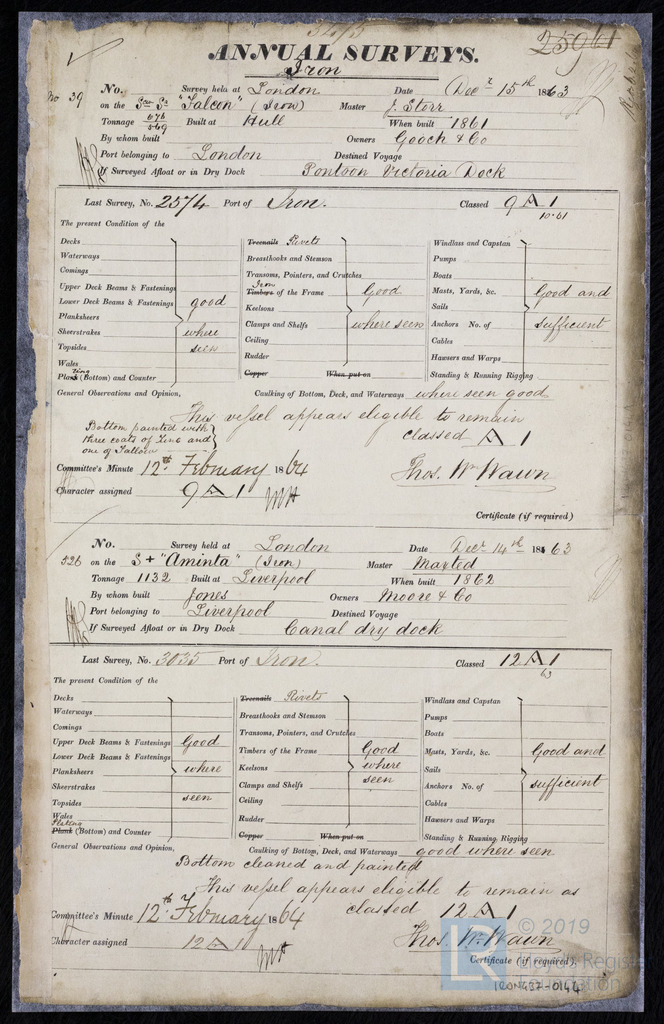 25961
ANNUAL SURVEYS.
Iron
No 39 No. Survey held at London Date Decr 15th 1863
on the "Falcon" (Iron) Master J. Storr
Tonnage 675 569 Built at Hull When built 1861
By whom built Owners Gooch & Co
Port belonging to London Destined Voyage
If Surveyed Afloat or in Dry Dock Pontoon Victoria Dock
Last Survey, No. 2574 Port of Iron. Classed 9 A 1
10.61
The present Condition of the
Decks
Waterways
Comings
Upper Deck Beams & Fastenings
Lower Deck Beams & Fastenings good
Planksheers
Sheerstrakes where
Topsides seen
Wales
Plating (Bottom) and Counter
Treenails Rivets
Breasthooks and Stemson
Transoms, Pointers, and Crutches
Iron
Timbers of the Frame Good
Keelsons
Clamps and Shelfs where seen
Ceiling
Rudder
Copper When put on
Windlass and Capstan
Pumps
Boats
Masts, Yards, &c. Good and
Sails
Anchors No. of sufficient
Cables
Hawsers and Warps
Standing & Running Rigging
General Observations and Opinion, Caulking of Bottom, Deck, and Waterways where seen good
This vessel appears eligible to remain
classed A 1
Bottom painted with
three coats of Zinc and
one of Tallow
Committee's Minute 12th February 1864 Thos. Wm Wawn
Character assigned 9 A 1
Certificate (if required)
No. Survey held at London Date Decr 14th 1863
526 on the S+ "Aminta" (Iron) Master Maxted
Tonnage 1132 Built at Liverpool When built 1862
By whom built Jones Owners Moore & Co
Port belonging to Liverpool Destined Voyage
If Surveyed Afloat or in Dry Dock Canal dry dock
Last Survey, No. 3035 Port of Iron. Classed 12 A 1
63
The present Condition of the
Decks
Waterways
Comings
Upper Deck Beams & Fastenings Good
Lower Deck Beams & Fastenings
Planksheers where
Sheerstrakes
Topsides seen
Wales
Plating
Plank (Bottom) and Counter
Treenails Rivets
Breasthooks and Stemson
Transoms, Pointers, and Crutches
Timbers of the Frame Good
Keelsons where
Clamps and Shelfs seen
Ceiling
Rudder
Copper When put on
Windlass and Capstan
Pumps
Boats
Masts, Yards, &c. Good and
Sails
Anchors No. of sufficient
Cables
Hawsers and Warps
Standing & Running Rigging
General Observations and Opinion, Caulking of Bottom, Deck, and Waterways good where seen
Bottom cleaned and painted
This vessel appears eligible to remain as
classed 12 A 1
Committee's Minute 12th February 1864
Thos. Wm Wawn
Character assigned 12 A 1
Certificate (if required).
© 2019
LR Lloyd's Register
Foundation
IRON437-0144